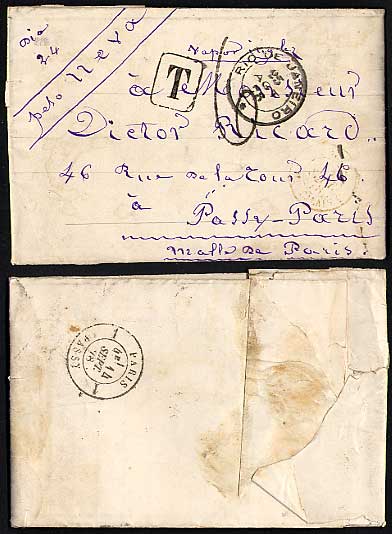 Dia
24
pelo Neva
Vapor inglez
T
RIO DE JANEIRO
à Monsieur
Victor Ricard
46 Rue de la Tour 46
à
Passy-Paris
Malle de Paris.
PARIS
14
SEPT
78
(PASSY)